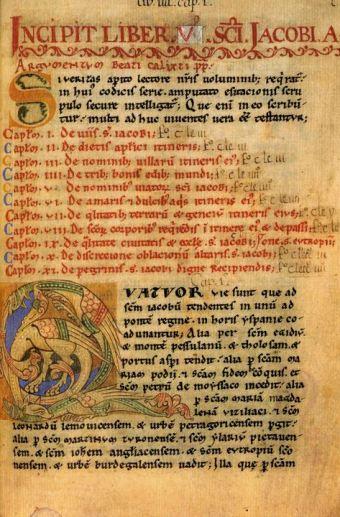 INCIPIT LIBER V SCI IACOBI A
Argumentum Beati Calixti pp.
Si veritas apto lectore nris voluminib; reqrat.
in hui codicis serie. amputato esitacionis scru
pulo secure intelligat. Que eni in eo scribun
tur. multi ad huc viventes vera ee testantur.
Caplm. I. De viis. s. iacobi;
Caplm. II. De dietis aplici itineris;
Caplm. III. De nominib; villaru itineris ei;
Caplm. IIII. De trib; bonis edib; mundi;
Caplm. V. De nominib; viator sci iacobi;
Caplm. VI. De amaris i dulcib; aquis itineris ei;
Caplm. VII. De qlitatib; terraru & genciu itineris eius,
Caplm. VIII. De scor corporib; reqredis i itinere ei & de passi;
Caplm. IX. De qlitate civitatis & eccle. s. iacobi;
Caplm. X. De discrecione oblacionu altaris. s. iacobi;
Caplm. XI. De pegrinis. s. iacobi digne recipiendis;
QUATUOR vie sunt que ad
scm iacobu tendentes in unu ad
ponte regine. in horis yspanie co
adunantur. Alia per scm egidiu.
& monte pessulanu. & tholosam. &
portus aspi tendit. alia p scam ma
riam podii. & scam fidem coqis. et
scm petru de moyssaco incedit. alia
p scam maria magda
lena viziliaci. & scm
leonardu lemovicensem. & urbe petragoricensem pgit.
alia p scm martinum turonensem. & scm ylariu pictaven
sem. & scm iohem angliacensem. & scm eutropiu sco
nensem. & urbe burdegalensem vadit; Illa que p scam